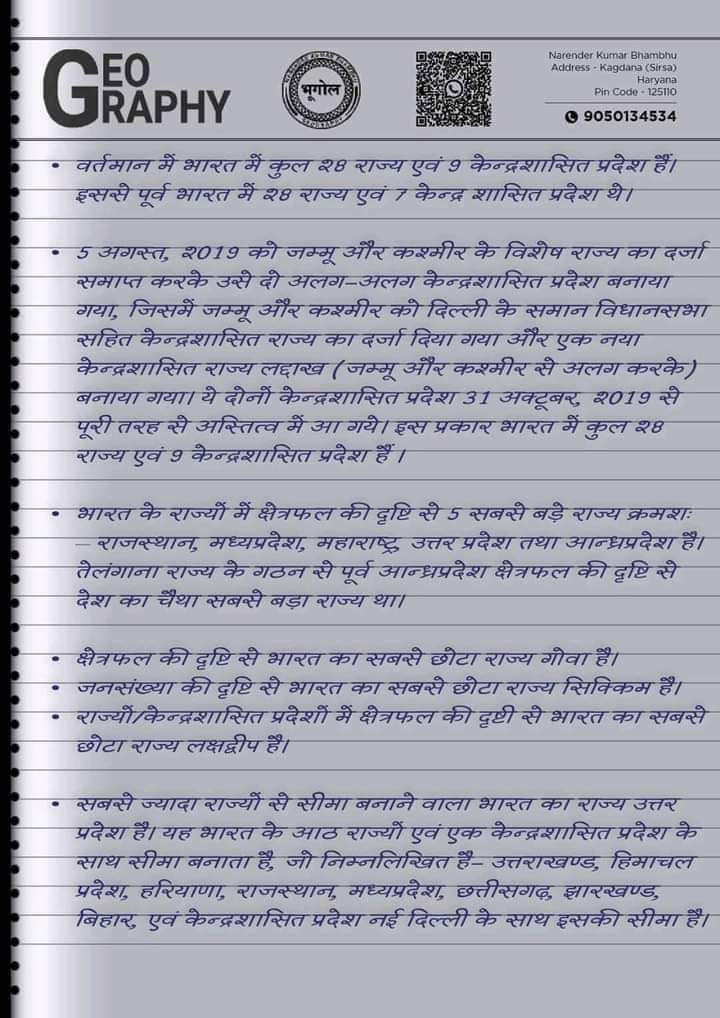 GEO
GRAPHY
भूगोल
Narender Kumar Bhambhu
Address - Kagdana (Sirsa)
Haryana
Pin Code - 125110
9050134534
• वर्तमान में भारत में कुल २८ राज्य एवं 9 केन्द्रशासित प्रदेश हैं।
इससे पूर्व भारत में २८ राज्य एवं 7 केन्द्र शासित प्रदेश थे।
• 5 अगस्त, २019 को जम्मू और कश्मीर के विशेष राज्य का दर्जा
समाप्त करके उसे दो अलग-अलग केन्द्रशासित प्रदेश बनाया
गया, जिसमें जम्मू और कश्मीर को दिल्ली के समान विधानसभा
सहित केन्द्रशासित राज्य का दर्जा दिया गया और एक नया
केन्द्रशासित राज्य लद्दाख (जम्मू और कश्मीर से अलग करके)
बनाया गया। ये दोनों केन्द्रशासित प्रदेश 31 अक्टूबर, २019 से
पूरी तरह से अस्तित्व में आ गये। इस प्रकार भारत में कुल २८
राज्य एवं 9 केन्द्रशासित प्रदेश हैं ।
• भारत के राज्यों में क्षेत्रफल की दृष्टि से 5 सबसे बड़े राज्य क्रमशः
– राजस्थान, मध्यप्रदेश, महाराष्ट्र, उत्तर प्रदेश तथा आन्ध्रप्रदेश है।
तेलंगाना राज्य के गठन से पूर्व आन्ध्रप्रदेश क्षेत्रफल की दृष्टि से
देश का चैथा सबसे बड़ा राज्य था।
• क्षेत्रफल की दृष्टि से भारत का सबसे छोटा राज्य गोवा है।
• जनसंख्या की दृष्टि से भारत का सबसे छोटा राज्य सिक्किम है।
• राज्यों/केन्द्रशासित प्रदेशों में क्षेत्रफल की दृष्टी से भारत का सबसे
छोटा राज्य लक्षद्वीप है।
• सबसे ज्यादा राज्यों से सीमा बनाने वाला भारत का राज्य उत्तर
प्रदेश है। यह भारत के आठ राज्यों एवं एक केन्द्रशासित प्रदेश के
साथ सीमा बनाता है, जो निम्नलिखित है– उत्तराखण्ड, हिमाचल
प्रदेश, हरियाणा, राजस्थान, मध्यप्रदेश, छत्तीसगढ़, झारखण्ड,
बिहार, एवं केन्द्रशासित प्रदेश नई दिल्ली के साथ इसकी सीमा है।